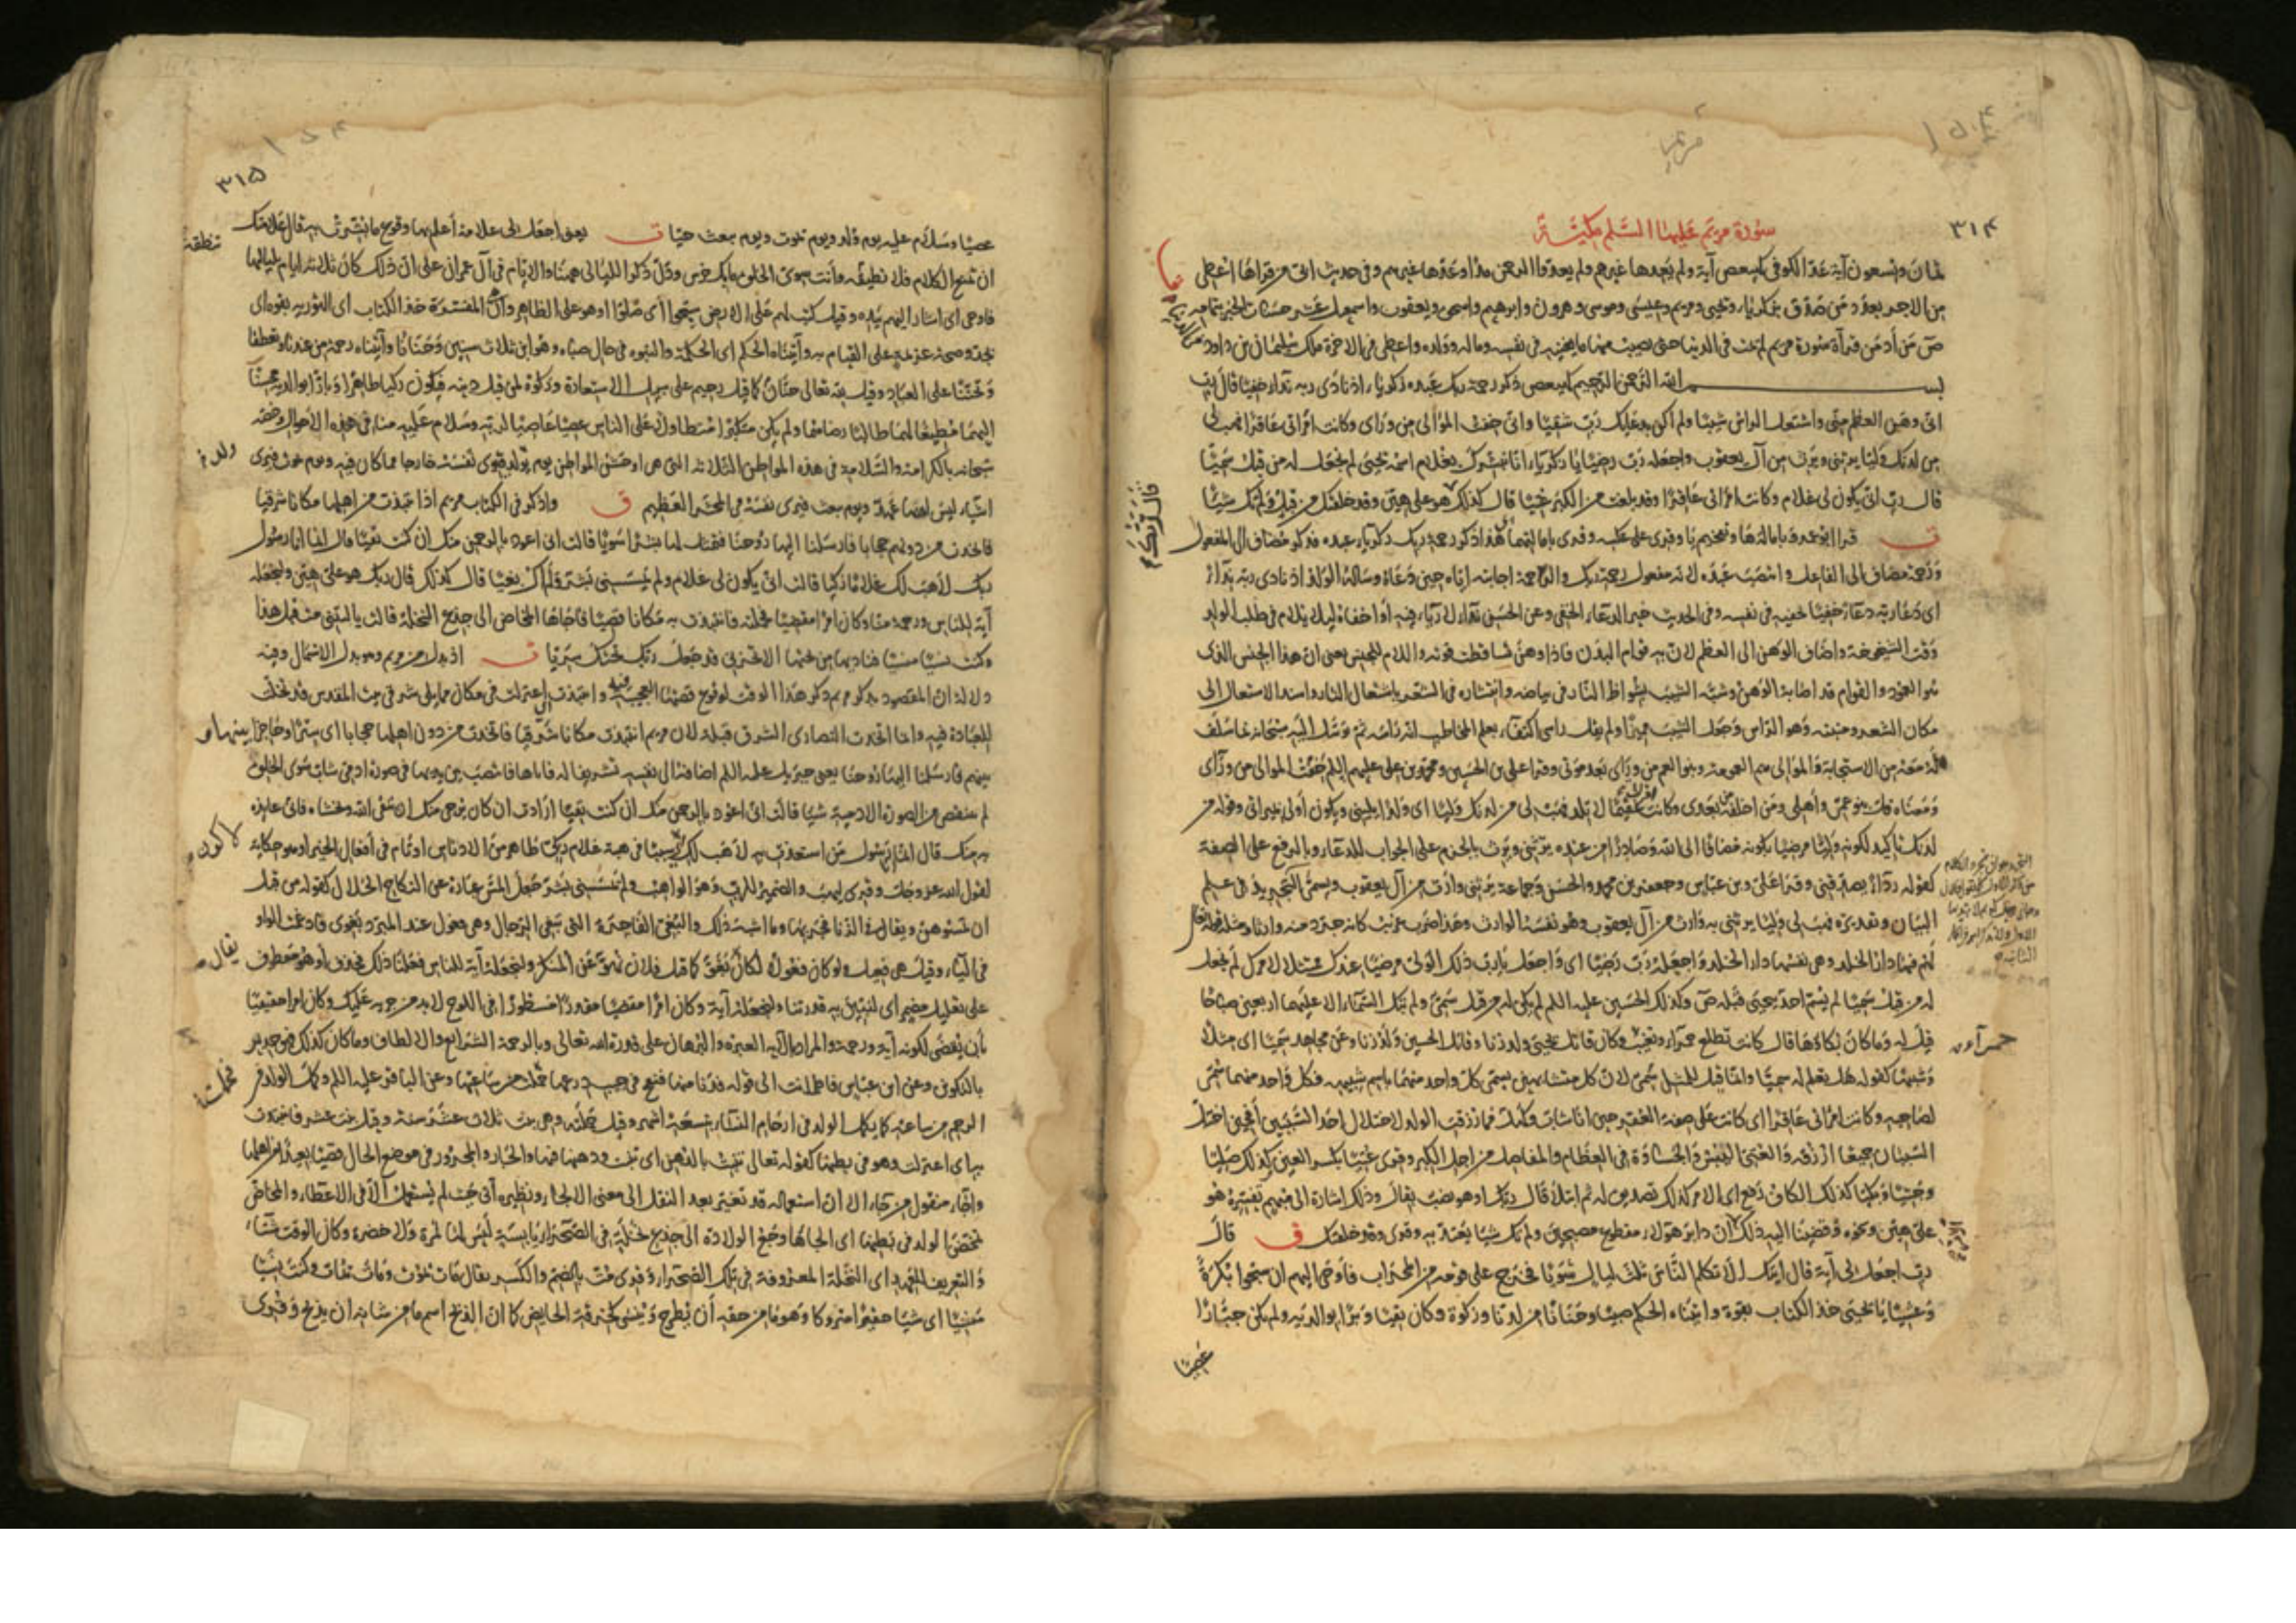 ٣١٤
سورة مريم عليها السلم مكية
ثمان وتسعون آية عد الكوفي كهيعص آية ولم يعدها غيرهم ولم يعدوا الرحمن مدا وعدها غيرهم وفي حديث ابي من قراها اعطي
من الاجر بعدد من صدق بزكريا ويحيى ومريم وعيسى وموسى وهرون وابرهيم واسحق ويعقوب واسمعيل عشر حسنات الخبر بتمامه
من أدمن قرآة سورة مريم لم يمت في الدنيا حتى يصيب منها ما يغنيه في نفسه وماله وولده واعطي في الاخرة ملك سليمان بن داود
بسم الله الرحمن الرحيم كهيعص ذكر رحمة ربك عبده زكرياء اذ نادى ربه نداء خفيا قال رب
انى وهن العظم منى واشتعل الراس شيبا ولم اكن بدعائك رب شقيا وانى خفت الموالى من ورآى وكانت امراتى عاقرا فهب لى
من لدنك وليا يرثنى ويرث من آل يعقوب واجعله رب رضيا يا زكرياء انا نبشرك بغلام اسمه يحيى لم نجعل له من قبل سميا
قال رب انى يكون لى غلام وكانت امراتى عاقرا وقد بلغت من الكبر عتيا قال كذلك هو على هين وقد خلقتك من قبل ولم تك شيئا
قال ربك
ورحمة مضاف الى الفاعل وانتصب عبده لانه مفعول رحمة ربك والرحمة اجابته اياه حين دعاه وساله الولد اذ نادى ربه نداء
اى دعا ربه دعاء خفيا خفيه في نفسه وفي الحديث خير الدعاء الخفي وعن الحسن نداء لا رياء فيه أو اخفاه ليلا يلام في طلب الولد
وقت الشيخوخة واضاف الوهن الى العظم لان به قوام البدن فاذا وهن تساقطت قوته واللام للجنس يعنى ان هذا الجنس الذى
هو العمود والقوام قد اصابه الوهن وشبه الشيب بشواظ النار في بياضه وانتشاره في الشعر باشتعال النار واسند الاشتعال الى
مكان الشعر ومنبته وهو الراس وجعل الشيب مميزا ولم يقل راسى اكتفاء بعلم المخاطب انه راسه ثم توسل اليه سبحانه بما سلف
له معه من الاستجابة والموالى هم العمومة وبنو العم من ورآى بعد موتى وقرا على بن الحسين ومحمد بن على عليهم السلم خفت الموالى من ورآى
لدنك تاكيد لكونه وليا مرضيا بكونه مضافا الى الله وصادرا من عنده يرثنى ويرث بالجزم على الجواب للدعاء وبالرفع على الصفة
كقوله ردءا يصدقنى وقرا على وبن عباس وجعفر بن محمد والحسن وجماعة يرثنى وارث من آل يعقوب ويسمى التجريد في علم
البيان وتقديره فهب لى وليا يرثنى به وارث من آل يعقوب وهو نفسه الوارث
له من قبل سميا لم يسم احد بيحيى قبله وكذلك الحسين عليه السلم لم يكن له من قبل سمي ولم تبك السماء الا عليهما اربعين صباحا
قيل له وما كان بكاؤها قال كانت تطلع حمراء وتغيب وكان قاتل يحيى ولد زنا وقاتل الحسين ولد زنا وعن مجاهد سميا اى مثلا
وشبيها كقوله هل تعلم له سميا وانما قيل للمثل سمى لان كل متشابهين يسمى كل واحد منهما باسم شبيهه فكل واحد منهما سمى
لصاحبه وكانت امراتى عاقرا اى كانت على صفة العقر حين انا شاب وكهل فما رزقت الولد لاختلال احد السببين أفحين اختل
السببان جميعا ارزقه والعتى اليبس والجساوة في العظام والمفاصل من اجل الكبر وقرى عتيا بكسر العين وكذلك صليا
على هين ونحوه وقضينا اليه ذلك الامر ان دابر هؤلاء مقطوع مصبحين ولم تك شيئا يعتد به وقرى وقد خلقناك ق قال
رب اجعل لى آية قال ايتك الا تكلم الناس ثلث ليال سويا فخرج على قومه من المحراب فأوحى اليهم ان سبحوا بكرة
وعشيا يا يحيى خذ الكتاب بقوة واتيناه الحكم صبيا وحنانا من لدنا وزكوة وكان تقيا وبرا بوالديه ولم يكن جبارا
عصيا
٣١٥
عصيا وسلام عليه يوم ولد ويوم يموت ويوم يبعث حيا ت يعنى اجعل لى علامة أعلم بها وقوع ما بشرت به قال علامتك
ان تمنع الكلام فلا تطيقه وأنت سوى الخلق ما بك خرس ودل ذكر الليالى هنا والايام في آل عمران على ان ذلك كان ثلاثة ايام بلياليها
فاوحى اى اشار اليهم بيده وقيل كتب لهم على الارض سبحوا أى صلوا او هو على الظاهر وأن المفسرة خذ الكتاب اى التورية بقوة اى
بجد وصحة عزيمة على القيام به وآتيناه الحكم اى الحكمة والنبوه في حال صباه وهو ابن ثلاث سنين وحنانا وآتيناه رحمة من عندنا وتعطفا
وتحننا على العباد وقيل لله تعالى حنان كما قيل رحيم على سبيل الاستعارة وزكوة لمن قبل دينه فيكون زكيا طاهرا وبارا بوالديه محسنا
اليهما مطيعا لهما طالبا رضاهما ولم يكن متكبرا متطاولا على الناس عصيا عاصيا لربه وسلام عليه منا في هذه الاحوال وخصه
سبحانه بالكرامة والسلامة في هذه المواطن الثلاثة التى هى اوحش المواطن يوم يولد فيرى نفسه خارجا مما كان فيه ويوم يموت فيرى
اشياء ليس له بها عهد ويوم يبعث فيرى نفسه في المحشر العظيم ق واذكر في الكتاب مريم اذ انتبذت من اهلها مكانا شرقيا
فاتخذت من دونهم حجابا فارسلنا اليها روحنا فتمثل لها بشرا سويا قالت انى اعوذ بالرحمن منك ان كنت تقيا قال انما انا رسول
ربك لاهب لك غلاما زكيا قالت انى يكون لى غلام ولم يمسسنى بشر ولم أك بغيا قال كذلك قال ربك هو على هين ولنجعله
آية للناس ورحمة منا وكان امرا مقضيا فحملته فانتبذت به مكانا قصيا فاجاءها المخاض الى جذع النخلة قالت يا ليتنى مت قبل هذا
وكنت نسيا منسيا فناديها من تحتها الا تحزنى قد جعل ربك تحتك سريا ت اذ بدل من مريم وهو بدل الاشتمال وفيه
دلالة ان المقصود بذكر مريم ذكر هذا الوقت لوقوع قصتها العجيبة فيه وانتبذت اى اعتزلت في مكان مما يلى شرقى بيت المقدس
للعبادة فيه وانما اتخذت النصارى الشرق قبلة لان مريم انتبذت مكانا شرقيا فاتخذت من دون اهلها حجابا اى سترا وحاجزا بينها و
بينهم فارسلنا اليها روحنا يعنى جبريل عليه السلم اضافه الى نفسه تشريفا له فاتاها فانتصب بين يديها في صورة ادمى شاب سوى الخلق
لم ينقص من الصورة الادمية شيا قالت انى اعوذ بالرحمن منك ان كنت تقيا ارادت ان كان يرجى منك ان تتقى الله وتخشاه فانى عايذه
به منك قال انما انا رسول من استعذت به لاهب لك لاكون سببا في هبة غلام زكى طاهر من الادناس او نام في أفعال الخير او هو حكاية
لقول الله عز وجل وقرى ليهب والضمير للرب وهو الواهب ولم يمسسنى بشر جعل المس عبارة عن النكاح الحلال كقوله من قبل
ان تمسوهن ويقال في الزنا فجر بها وما اشبه ذلك والبغى الفاجرة التى تبغى الرجال وهى فعول عند المبرد بغوى فادغمت الواو
في الياء وقيل هى فعيل ولو كان فعولا لكان بغو كما قيل فلان نهو عن المنكر ولنجعله آية للناس فعلنا ذلك فحذف أو هو معطوف
على تعليل مضمر اى لنبين به قدرتنا ولنجعله آية وكان امرا مقضيا مقدرا مسطورا في اللوح لابد من جريه عليك وكان امرا حقيقيا
بأن يقضى لكونه آية ورحمة والمراد بالآية العبرة والبرهان على قدرة الله تعالى وبالرحمة الشرايع والالطاف وما كان كذلك فهو جدير
بالتكوين وعن ابن عباس فاطمانت الى قوله فدنا منها فنفخ في جيب درعها فحملت من ساعتها وعن الباقر عليه السلم وكمل الولد في
الرحم من ساعته كما يكمل الولد في ارحام النساء تسعة اشهر وقيل حملته وهى بنت ثلاث عشرة سنة وقيل بنت عشر فانتبذت
به اى اعتزلت وهو في بطنها كقوله تعالى تنبت بالدهن اى تنبت ودهنها فيها والجار والمجرور في موضع الحال قصيا بعيدا من اهلها
واجاء منقول من جاء الا ان استعماله قد تغير بعد النقل الى معنى الالجاء ونظيره آتى حيث لم يستعمل الا في الاعطاء والمخاض
تمخض الولد في بطنها اى الجأها وجع الولادة الى جذع نخلة في الصحراء يابسة ليس لها ثمرة ولا خضرة وكان الوقت شتاء
والتعريف للعهد اى النخلة المعروفة في تلك الصحراء وقرى مت بالضم والكسر يقال مات يموت ومات يمات وكنت نسيا
منسيا اى شيا حقيرا متروكا وهو ما من حقه أن يطرح وينسى كخرقة الحايض كما ان الذبح اسم ما من شانه ان يذبح وقرى